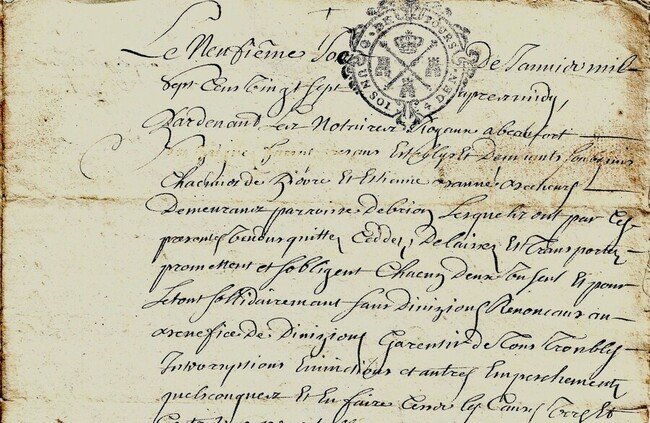 Le Neufiéme Jo de Janvier mil
Sept Cens vingt Sept apresmidy,
Pardevant Les Notaires Royaux a beaufort
Estably Et Demeurants
Chacuns de Et Estienne
Demeurans parroisse debrion Lesquels ont par Ces
presentes Vendu quitté, Ceddé, Delaissé Et Transporté,
promettent et Sobligent Chacun Deux Seul Et pour
Le tout Sollidairement Sans Divizion Renoncant au
benefice De Divizion, Garentir de Tous Troubles
Interruptions Evinctions et autres Empeschements
quelsconques Et En faire Cesser les Causes Vers Et
G. DE TOURS
UN SOL 4 DEN.